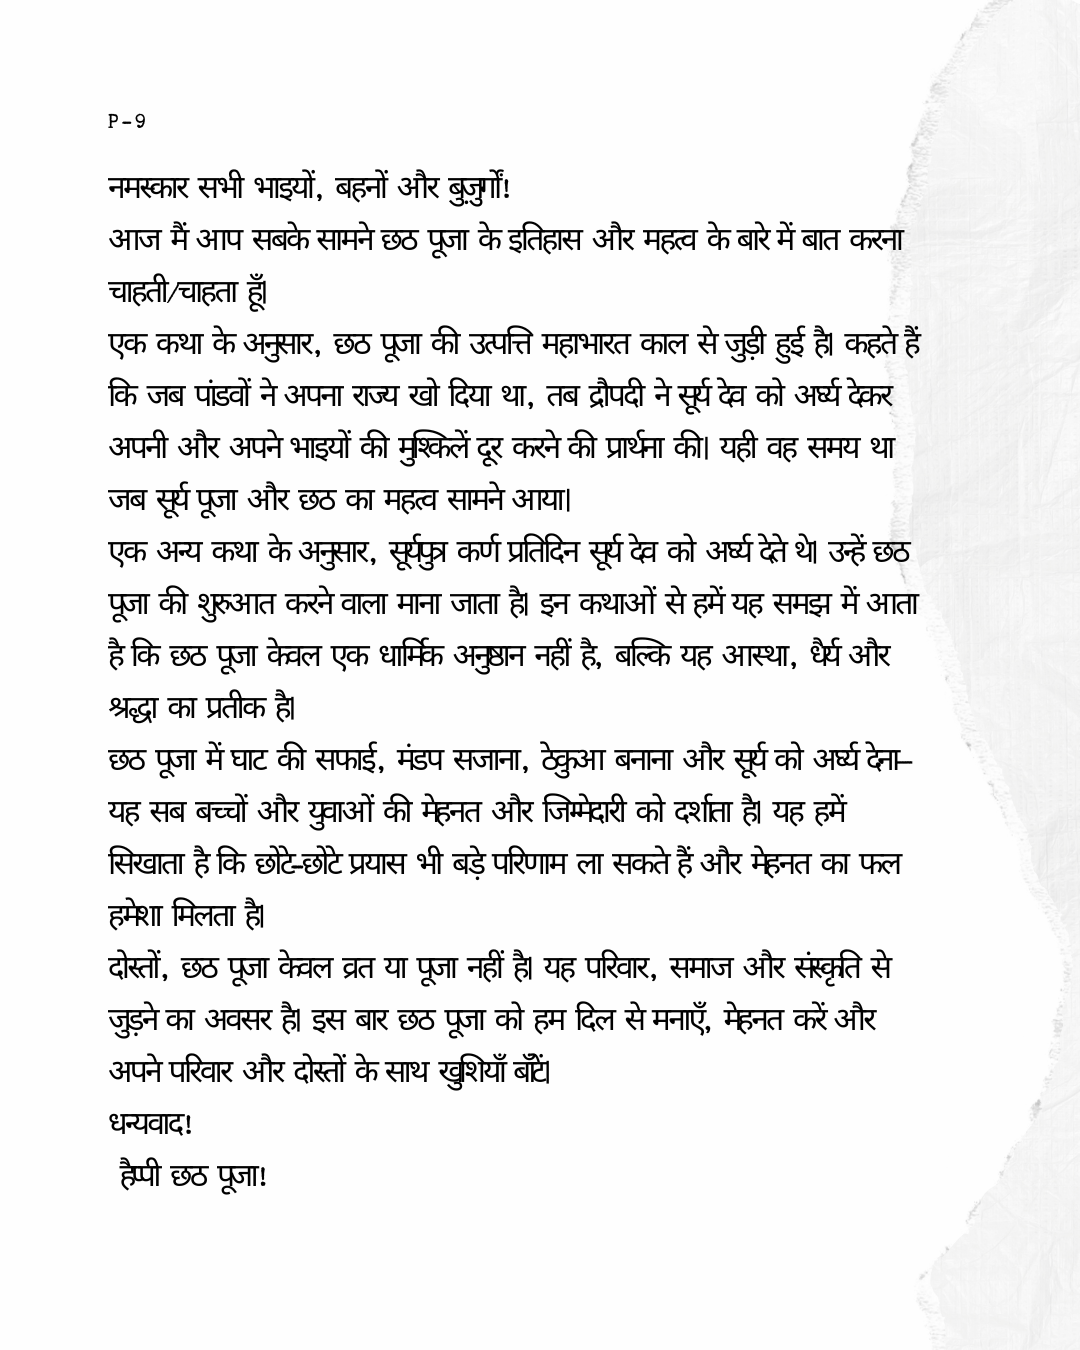 P-9
नमस्कार सभी भाइयों, बहनों और बुज़ुर्गों!
आज मैं आप सबके सामने छठ पूजा के इतिहास और महत्व के बारे में बात करना
चाहती/चाहता हूँ|
एक कथा के अनुसार, छठ पूजा की उत्पत्ति महाभारत काल से जुड़ी हुई है| कहते हैं
कि जब पांडवों ने अपना राज्य खो दिया था, तब द्रौपदी ने सूर्य देव को अर्घ्य देकर
अपनी और अपने भाइयों की मुश्किलें दूर करने की प्रार्थना की| यही वह समय था
जब सूर्य पूजा और छठ का महत्व सामने आया|
एक अन्य कथा के अनुसार, सूर्यपुत्र कर्ण प्रतिदिन सूर्य देव को अर्घ्य देते थे| उन्हें छठ
पूजा की शुरुआत करने वाला माना जाता है| इन कथाओं से हमें यह समझ में आता
है कि छठ पूजा केवल एक धार्मिक अनुष्ठान नहीं है, बल्कि यह आस्था, धैर्य और
श्रद्धा का प्रतीक है|
छठ पूजा में घाट की सफाई, मंडप सजाना, ठेकुआ बनाना और सूर्य को अर्घ्य देना–
यह सब बच्चों और युवाओं की मेहनत और जिम्मेदारी को दर्शाता है| यह हमें
सिखाता है कि छोटे-छोटे प्रयास भी बड़े परिणाम ला सकते हैं और मेहनत का फल
हमेशा मिलता है|
दोस्तों, छठ पूजा केवल व्रत या पूजा नहीं है| यह परिवार, समाज और संस्कृति से
जुड़ने का अवसर है| इस बार छठ पूजा को हम दिल से मनाएँ, मेहनत करें और
अपने परिवार और दोस्तों के साथ खुशियाँ बाँटें|
धन्यवाद!
हैप्पी छठ पूजा!